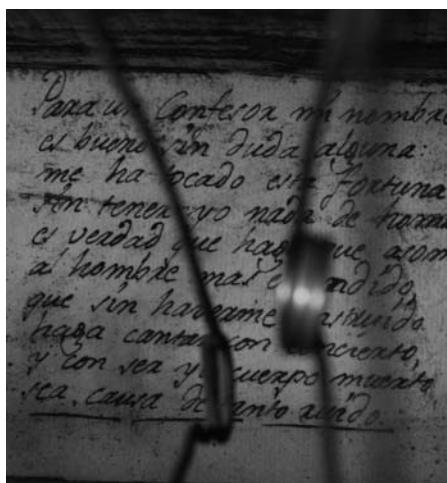 Para un Confesor mi nombre
es bueno sin duda alguna:
me ha tocado esta fortuna
sin tener yo nada de
es verdad que hago que
al hombre mas
que sin haverme
haga cantar con
y con ser yo cuerpo muerto
sea causa de tanto ruido.